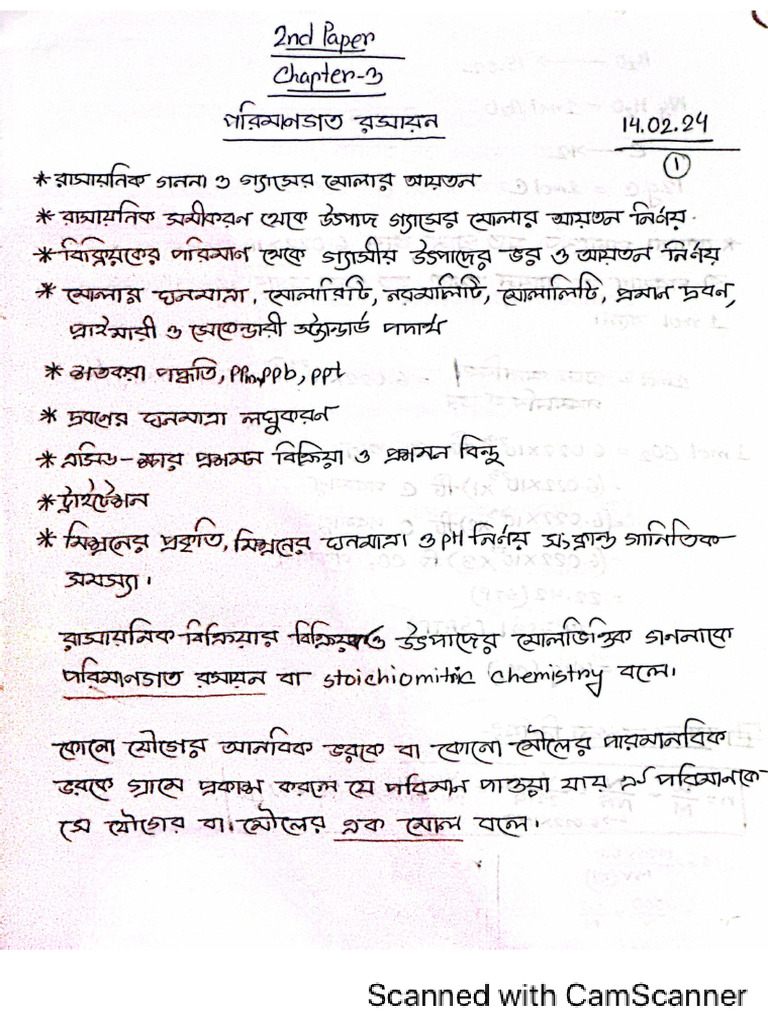 2nd Paper
Chapter-3
পরিমানগত রসায়ন
14.02.24
1
* রাসায়নিক গননা ও গ্যাসের মোলার আয়তন
* রাসায়নিক সমীকরন থেকে উৎপাদ গ্যাসের মোলার আয়তন নির্ণয়.
* বিক্রিয়কের পরিমান থেকে গ্যাসীয় উৎপাদের ভর ও আয়তন নির্ণয়
* মোলার ঘনমাত্রা, মোলারিটি, নরমালিটি, মোলালিটি, প্রমান দ্রবন,
প্রাইমারী ও সেকেন্ডারী স্ট্যান্ডার্ড পদার্থ
* শতকরা পদ্ধতি, PPm, PPb, PPt
* দ্রবনের ঘনমাত্রা লঘুকরন
* এসিড-ক্ষার প্রশমন বিক্রিয়া ও প্রশমন বিন্দু
* ট্রাইটেশন
* মিশ্রনের প্রকৃতি, মিশ্রনের ঘনমাত্রা ও PH নির্ণয় সংক্রান্ত গানিতিক
সমস্যা।
রাসায়নিক বিক্রিয়ার বিক্রিয়ক ও উৎপাদের মোলভিত্তিক গননাকে
পরিমানগত রসায়ন বা stoichiomitric chemistry বলে।
কোনো যৌগের আনবিক ভরকে বা কোনো মৌলের পারমানবিক
ভরকে গ্রামে প্রকাশ করলে যে পরিমান পাওয়া যায় ঐ পরিমানকে
সে যৌগের বা মৌলের এক মোল বলে।
Scanned with CamScanner